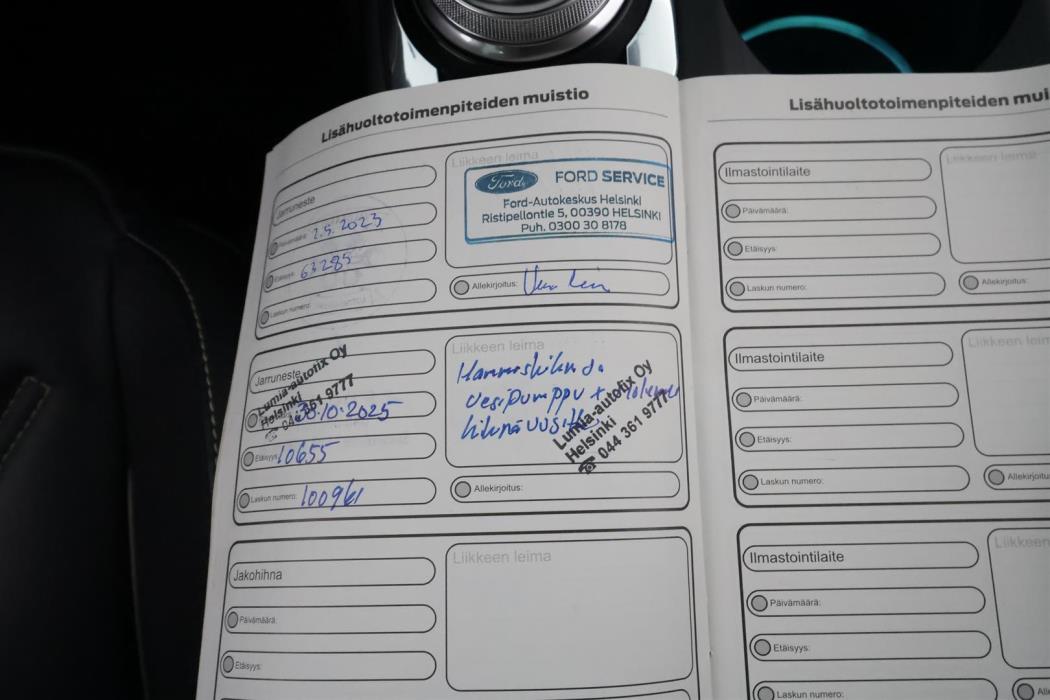 Lisähuoltotoimenpiteiden muistio
Jarruneste
Päivämäärä: 2.5.2023
Etäisyys: 63285
Laskun numero:
Liikkeen leima
Ford
FORD SERVICE
Ford-Autokeskus Helsinki
Ristipellontie 5, 00390 HELSINKI
Puh. 0300 30 8178
Allekirjoitus:
Jarruneste
Lumia-autofix Oy
Helsinki
☎ 044 361 9777
30.10.2025
Etäisyys: 10655
Laskun numero: 100961
Liikkeen leima
vesipumppu
Lumia-autofix Oy
Helsinki
☎ 044 361 9777
Allekirjoitus:
Jakohihna
Päivämäärä:
Etäisyys:
Liikkeen leima
Lisähuoltotoimenpiteiden mui
Ilmastointilaite
Päivämäärä:
Etäisyys:
Laskun numero:
Liikkeen leima
Allekirjoitus:
Ilmastointilaite
Päivämäärä:
Etäisyys:
Laskun numero:
Liikkeen leim
Allekirjoitu
Ilmastointilaite
Päivämäärä:
Etäisyys:
Laskun numero:
Liikkeen
Alle